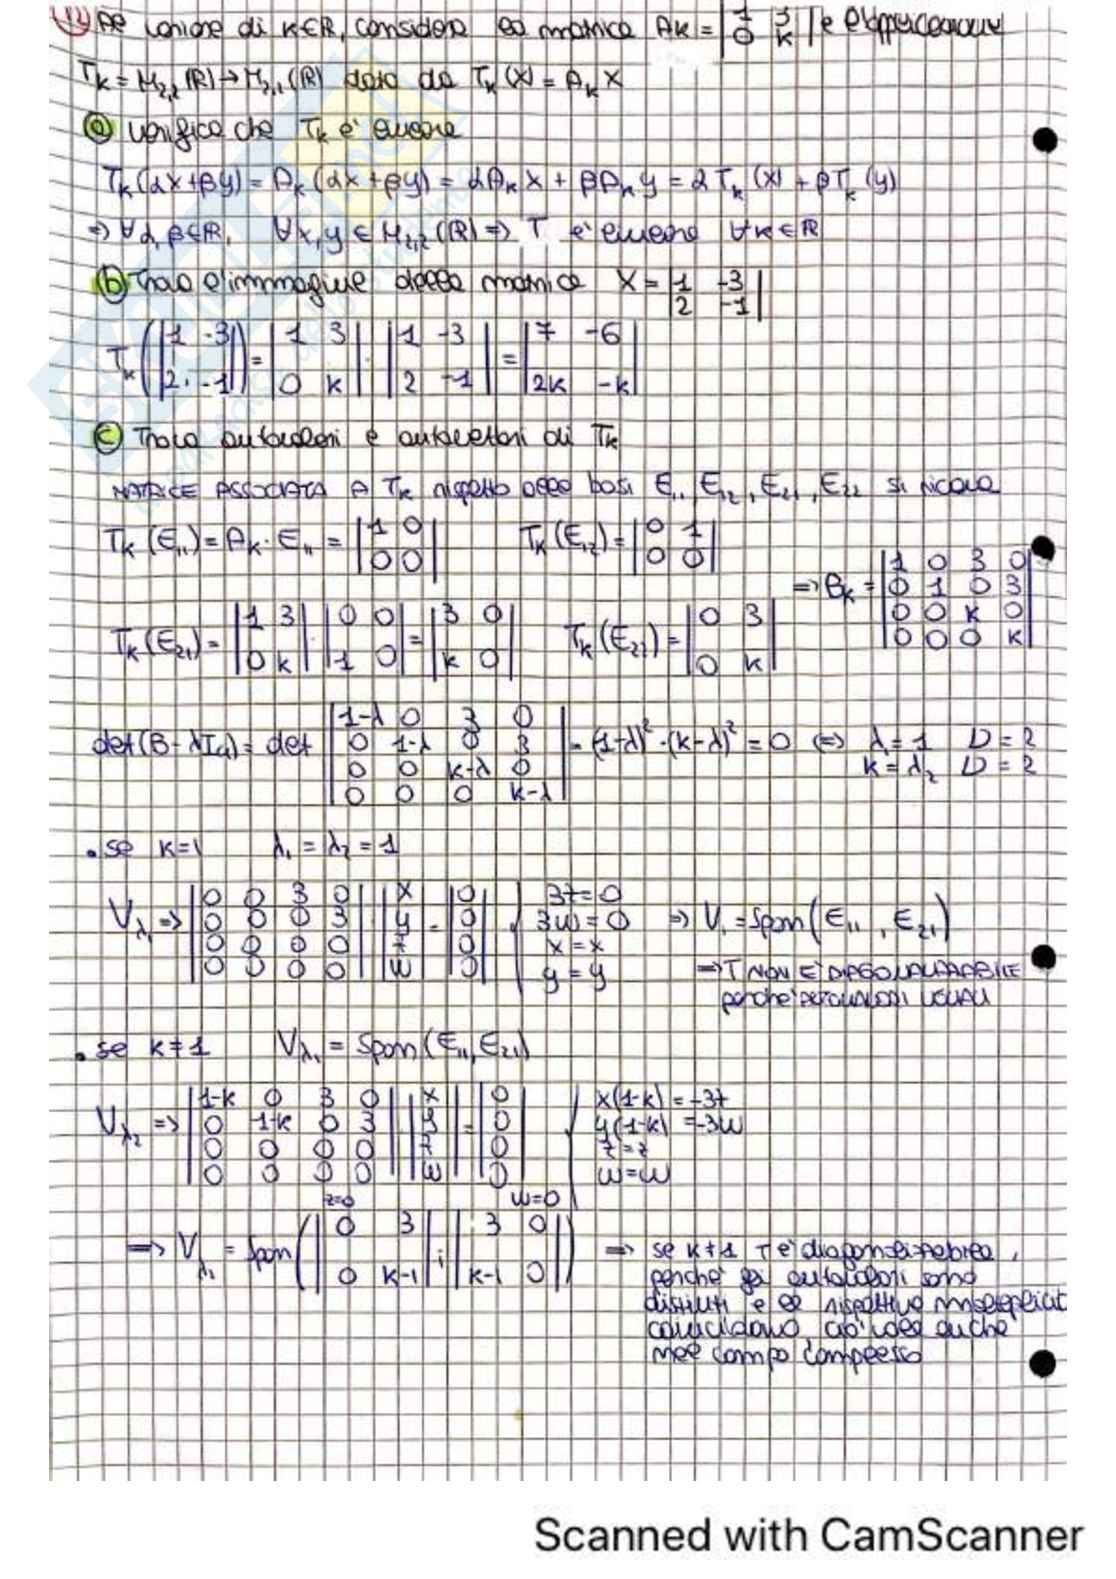 12) Al variare di k∈R, considera la matrice Ak = |1 3| e l'applicazione
|0 k|
Tk = M2,2(R) → M2,2(R) data da Tk(X) = Ak X
a) verifica che Tk è lineare
Tk(αx+βy) = Ak(αx+βy) = αAkX + βAky = αTk(x) + βTk(y)
=> ∀α,β∈R, ∀x,y ∈ M2,2(R) => T è lineare ∀k∈R
b) Trova l'immagine della matrice X = |1 -3|
|2 -1|
Tk(|1 -3|) = |1 3| · |1 -3| = |7 -6|
|2 -1| |0 k| |2 -1| |2k -k|
c) Trova autovalori e autovettori di Tk
MATRICE ASSOCIATA A Tk rispetto alle basi E11, E12, E21, E22 si ricava
Tk(E11) = Ak · E11 = |1 0| Tk(E12) = |0 1|
|0 0| |0 0|
=> Bk = |1 0 3 0|
|0 1 0 3|
|0 0 k 0|
|0 0 0 k|
Tk(E21) = |1 3| · |0 0| = |3 0| Tk(E22) = |0 3|
|0 k| |1 0| |k 0| |0 k|
det(B-λId) = det |1-λ 0 3 0| = (1-λ)² · (k-λ)² = 0 <=> λ=1 D=2
|0 1-λ 0 3| k=λ2 D=2
|0 0 k-λ 0|
|0 0 0 k-λ|
• se k=1 λ1 = λ2 = 1
Vλ1 => |0 0 3 0| |x| = |0| 3z=0
|0 0 0 3| |y| |0| 3w=0 => V1 = Span(E11, E21)
|0 0 0 0| |z| |0| x=x
|0 0 0 0| |w| |0| y=y
=> T NON E' DIAGONALIZZABILE
perché AUTOVALORI UGUALI
• se k≠1 Vλ1 = Span(E11, E21)
Vλ2 => |1-k 0 3 0| |x| = |0| x(1-k) = -3z
|0 1-k 0 3| |y| |0| y(1-k) = -3w
|0 0 0 0| |z| |0| z=z
|0 0 0 0| |w| |0| w=w
z=0 w=0
=> Vλ2 = Span(|0 3| ; |3 0|)
|0 k-1| |k-1 0|
=> se k≠1 T è diagonalizzabile,
perché gli autovalori sono
distinti e le rispettive molteplicit
coincidono, ciò vale anche
nel campo complesso
Scanned with CamScanner